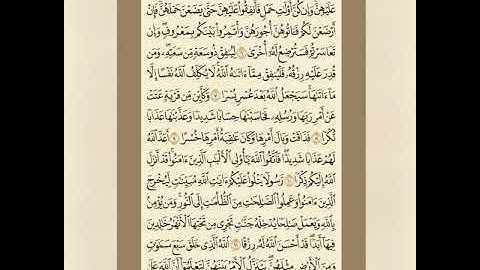 عَلَيْهِنَّ وَإِن كُنَّ أُو۟لَٰتِ حَمْلٍ فَأَنفِقُوا۟ عَلَيْهِنَّ حَتَّىٰ يَضَعْنَ حَمْلَهُنَّ فَإِنْ
أَرْضَعْنَ لَكُمْ فَـَٔاتُوهُنَّ أُجُورَهُنَّ وَأْتَمِرُوا۟ بَيْنَكُم بِمَعْرُوفٍ وَإِن
تَعَاسَرْتُمْ فَسَتُرْضِعُ لَهُۥٓ أُخْرَىٰ ٦ لِيُنفِقْ ذُو سَعَةٍ مِّن سَعَتِهِۦ وَمَن
قُدِرَ عَلَيْهِ رِزْقُهُۥ فَلْيُنفِقْ مِمَّآ ءَاتَىٰهُ ٱللَّهُ لَا يُكَلِّفُ ٱللَّهُ نَفْسًا إِلَّا
مَآ ءَاتَىٰهَا سَيَجْعَلُ ٱللَّهُ بَعْدَ عُسْرٍ يُسْرًا ٧ وَكَأَيِّن مِّن قَرْيَةٍ عَتَتْ
عَنْ أَمْرِ رَبِّهَا وَرُسُلِهِۦ فَحَاسَبْنَٰهَا حِسَابًا شَدِيدًا وَعَذَّبْنَٰهَا عَذَابًا
نُّكْرًا ٨ فَذَاقَتْ وَبَالَ أَمْرِهَا وَكَانَ عَٰقِبَةُ أَمْرِهَا خُسْرًا ٩ أَعَدَّ ٱللَّهُ
لَهُمْ عَذَابًا شَدِيدًا فَٱتَّقُوا۟ ٱللَّهَ يَٰٓأُو۟لِى ٱلْأَلْبَٰبِ ٱلَّذِينَ ءَامَنُوا۟ قَدْ أَنزَلَ
ٱللَّهُ إِلَيْكُمْ ذِكْرًا ١٠ رَّسُولًا يَتْلُوا۟ عَلَيْكُمْ ءَايَٰتِ ٱللَّهِ مُبَيِّنَٰتٍ لِّيُخْرِجَ
ٱلَّذِينَ ءَامَنُوا۟ وَعَمِلُوا۟ ٱلصَّٰلِحَٰتِ مِنَ ٱلظُّلُمَٰتِ إِلَى ٱلنُّورِ وَمَن يُؤْمِنۢ
بِٱللَّهِ وَيَعْمَلْ صَٰلِحًا يُدْخِلْهُ جَنَّٰتٍ تَجْرِى مِن تَحْتِهَا ٱلْأَنْهَٰرُ خَٰلِدِينَ
فِيهَآ أَبَدًا قَدْ أَحْسَنَ ٱللَّهُ لَهُۥ رِزْقًا ١١ ٱللَّهُ ٱلَّذِى خَلَقَ سَبْعَ سَمَٰوَٰتٍ
وَمِنَ ٱلْأَرْضِ مِثْلَهُنَّ يَتَنَزَّلُ ٱلْأَمْرُ بَيْنَهُنَّ لِتَعْلَمُوٓا۟ أَنَّ ٱللَّهَ عَلَىٰ